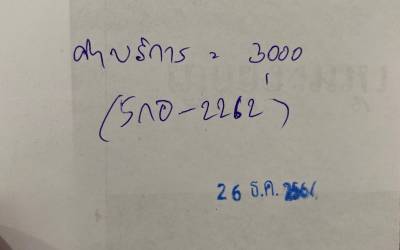 ค่าบริการ = 3000
(5กอ-2262)
26 ธ.ค.